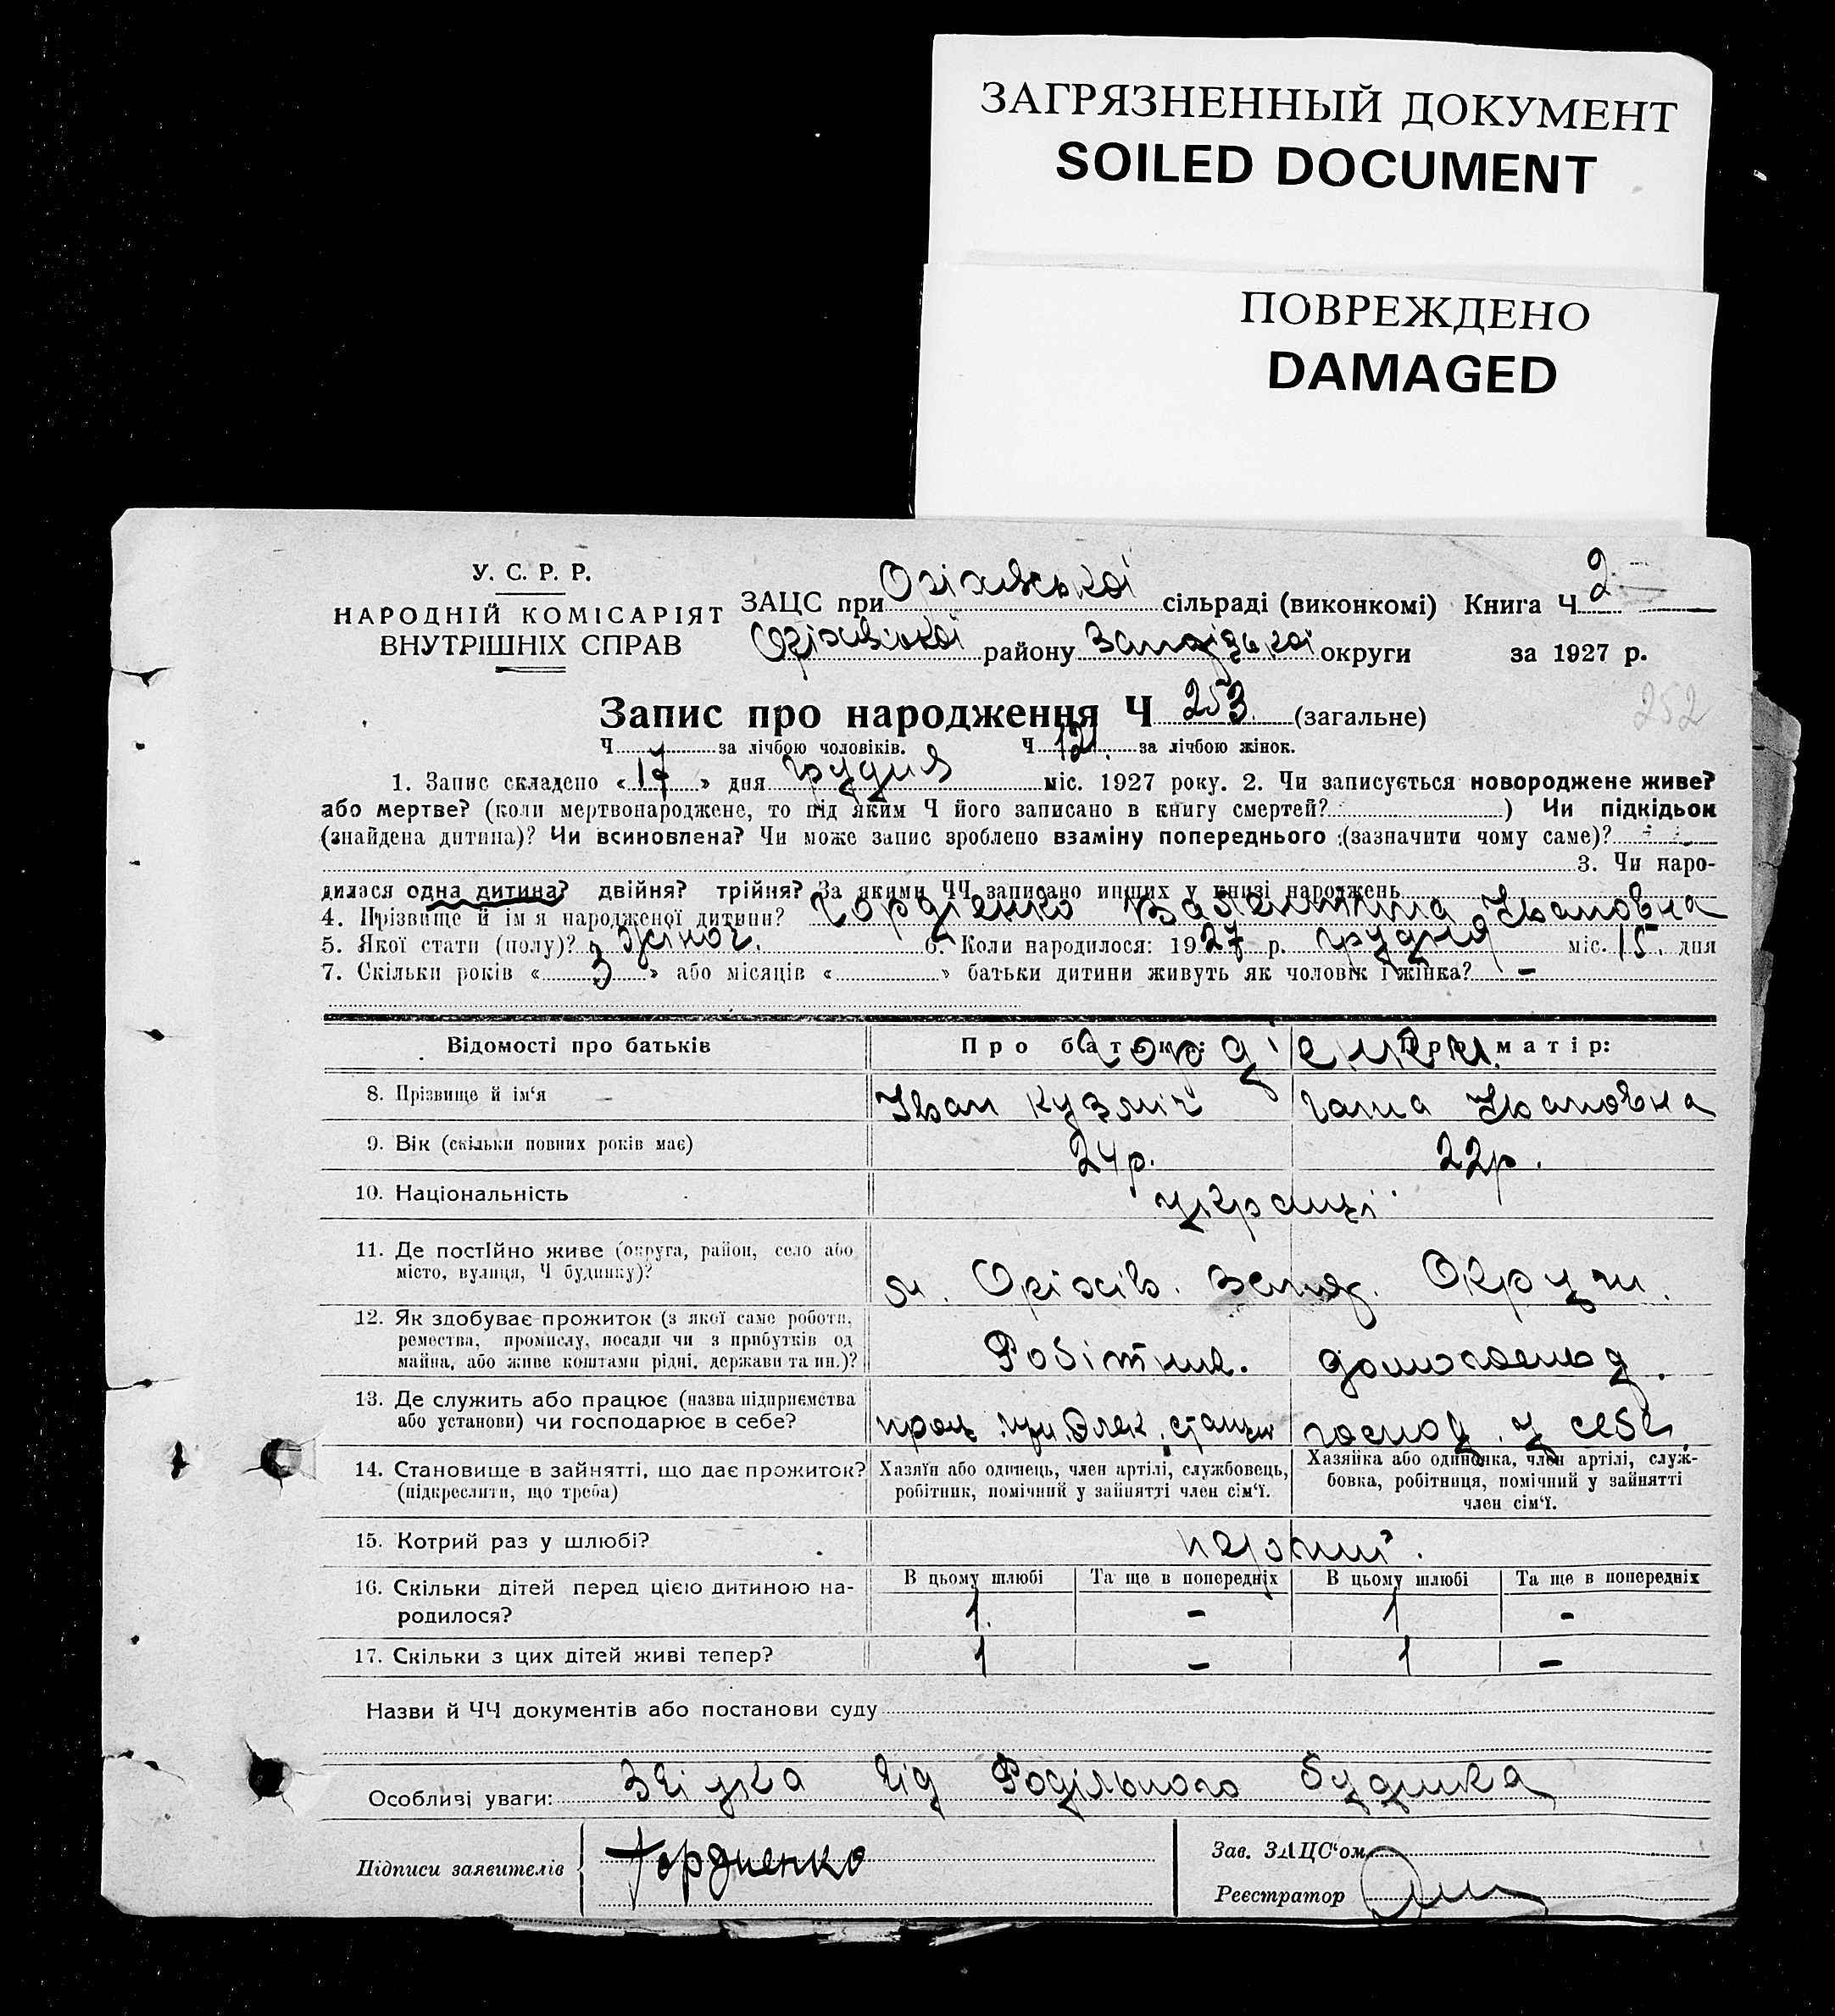 ЗАГРЯЗНЕННЫЙ ДОКУМЕНТ
SOILED DOCUMENT
ПОВРЕЖДЕНО
DAMAGED
У. С. Р. Р.
НАРОДНІЙ КОМІСАРІЯТ
ВНУТРІШНІХ СПРАВ
ЗАЦС при Оріхівської сільраді (виконкомі) Книга Ч. 2
Оріхівської району Запорізької округи за 1927 р.
Запис про народження Ч 253 (загальне)
252
Ч. за лічбою чоловіків. Ч. 121 за лічбою жінок.
1. Запис складено «17» дня грудня міс. 1927 року. 2. Чи записується новороджене живе?
або мертве? (коли мертвонароджене, то під яким Ч його записано в книгу смертей? ) Чи підкідьок
(знайдена дитина)? Чи всиновлена? Чи може запис зроблено взаміну попереднього (зазначити чому саме)?
3. Чи наро-
дилася одна дитина? двійня? трійня? За якими ЧЧ записано инших у книзі народжень
4. Прізвище й ім'я народженої дитини? Гордієнко Валентина Івановна
5. Якої стати (полу)? Жіноч. 6. Коли народилося: 1927 р. грудня міс. 15. дня
7. Скільки років « 3 » або місяців « » батьки дитини живуть як чоловік і жінка? -
Відомості про батьків Про батька: Про матір:
Гордієнки
8. Прізвище й ім'я Іван Кузміч Ганна Івановна
9. Вік (скільки повних років має) 24р. 22р.
10. Національність українці
11. Де постійно живе (округа, район, село або
місто, вулиця, Ч будинку)? м. Оріхів. Запор. Округи.
12. Як здобуває прожиток (з якої саме роботи,
ремества, промислу, посади чи з прибутків од
майна, або живе коштами рідні, держави та ин.)? Робітник. домогоспод.
13. Де служить або працює (назва підприємства
або установи) чи господарює в себе? прац. при. Элек. станции господ. у себе.
14. Становище в зайнятті, що дає прожиток?
(підкреслити, що треба)
Хазяїн або одинець, член артілі, службовець,
робітник, помічний у зайнятті член сім'ї.
Хазяйка або одиночка, член артілі, служ-
бовка, робітниця, помічний у зайнятті
член сім'ї.
15. Котрий раз у шлюбі?
В цьому шлюбі Та ще в попередніх В цьому шлюбі Та ще в попередніх
16. Скільки дітей перед цією дитиною на-
родилося? 1. - 1 -
17. Скільки з цих дітей живі тепер? 1 - 1 -
Назви й ЧЧ документів або постанови суду
Особливі уваги: Звістка від Родільного будинка
Підписи заявителів Гордиенко
Зав. ЗАЦС'ом
Реєстратор